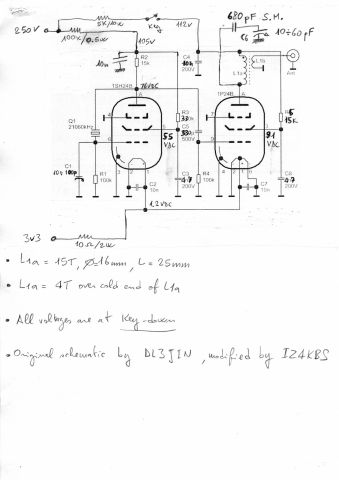 680 pF S.M.
5K/10W
Key
112V
10÷60pF
250V
100K/0.5W
105V
C6
10n
R2
15k
C4
10n
200V
L1a
L1b
Ant
1SH24B
76VDC
1P24B
A
A
Q1
21060kHz
R3
33k
C5
500V
R5
15K
55
VDC
91
VDC
C1
10÷100pF
R1
100k
C2
10n
C3
4.7
200V
R4
100k
C7
10n
C8
4.7
200V
1,2VDC
3V3
10Ω/2W
• L1a = 15T, Ø=16mm, L=25mm
• L1a = 4T over cold end of L1a
• All voltages are at Key-down
• Original schematic by DL3JIN, modified by IZ4KBS